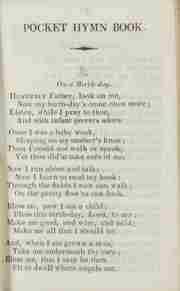 POCKET HYMN BOOK.
On a Birth-day.
HEAVENLY Father, look on me,
Now my birth-day's come once more;
Listen, while I pray to thee,
And with infant pow'rs adore.
Once I was a baby weak,
Sleeping on my mother's knee;
Then I could not walk or speak,
Yet thou did'st take care of me.
Now I run about and talk;
Now I learn to read my book;
Through the fields I now can walk;
On the pretty flow'rs can look.
Bless me, now I am a child;
Bless this birth-day, Lord, to me;
Make me good, and wise, and mild;
Make me all that I should be.
And, when I am grown a man,
Take me underneath thy care;
Bless me, that I may be then
Fit to dwell where angels are.